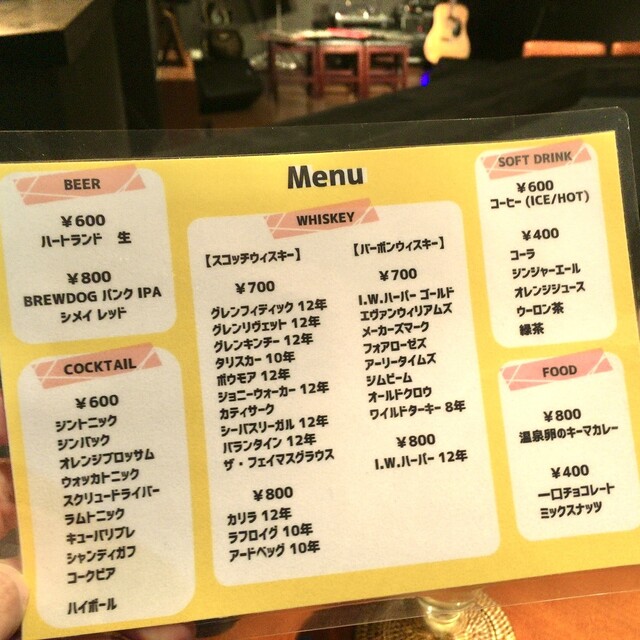 Menu
BEER
¥600
ハートランド 生
¥800
BREWDOG パンク IPA
シメイ レッド
COCKTAIL
¥600
ジントニック
ジンバック
オレンジブロッサム
ウォッカトニック
スクリュードライバー
ラムトニック
キューバリブレ
シャンディガフ
コークビア
ハイボール
WHISKEY
【スコッチウィスキー】
¥700
グレンフィディック 12年
グレンリヴェット 12年
グレンキンチー 12年
タリスカー 10年
ボウモア 12年
ジョニーウォーカー 12年
カティサーク
シーバスリーガル 12年
バランタイン 12年
ザ・フェイマスグラウス
¥800
カリラ 12年
ラフロイグ 10年
アードベッグ 10年
【バーボンウィスキー】
¥700
I.W.ハーパー ゴールド
エヴァンウィリアムズ
メーカーズマーク
フォアローゼズ
アーリータイムズ
ジムビーム
オールドクロウ
ワイルドターキー 8年
¥800
I.W.ハーパー 12年
SOFT DRINK
¥600
コーヒー (ICE/HOT)
¥400
コーラ
ジンジャーエール
オレンジジュース
ウーロン茶
緑茶
FOOD
¥800
温泉卵のキーマカレー
¥400
一口チョコレート
ミックスナッツ